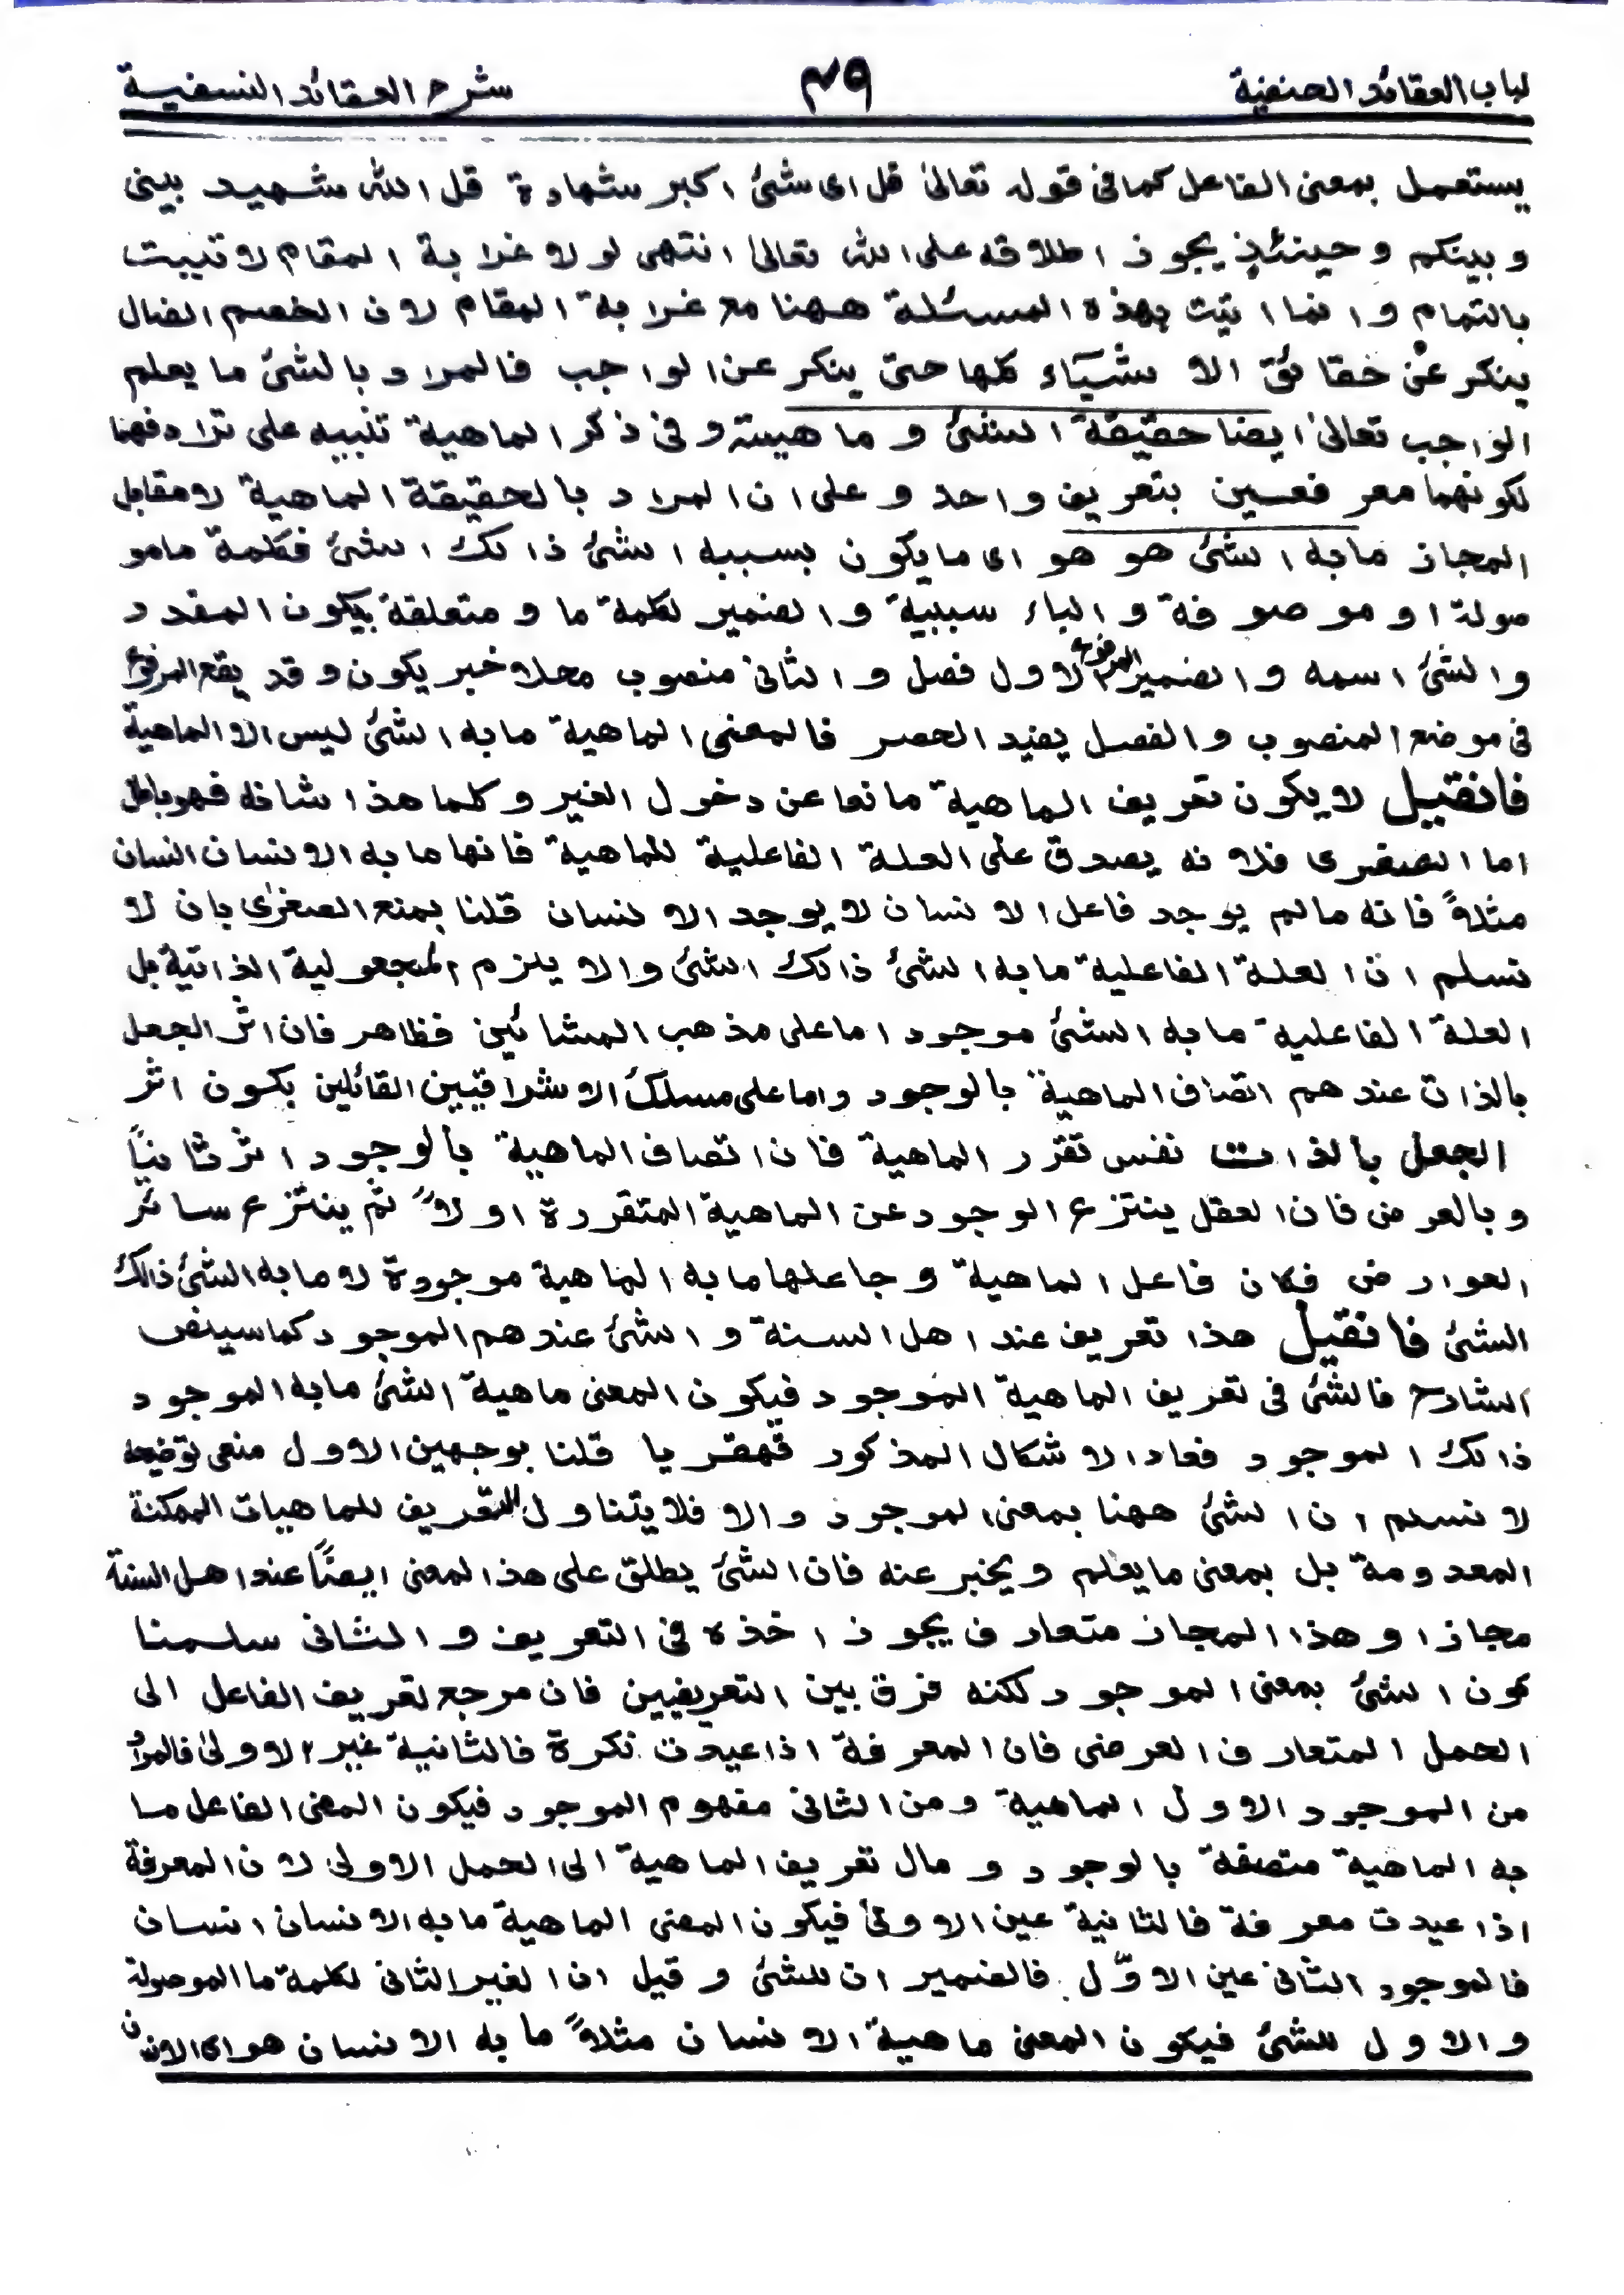 لباب العقائد الحنفية ٤٩ شرح العقائد النسفية
يستعمل بمعنى الفاعل كما فى قوله تعالىٰ قل اى شئ اكبر شهادة قل الله شهيد بينى
وبينكم وحينئذٍ يجوز اطلاقه على الله تعالىٰ انتهى لولا غرابة المقام لا تييت
بالتمام وانما اتيت بهذه المسئلة ههنا مع غرابة المقام لان الخصم الضال
ينكر عن حقائق الاشيَاء كلها حتى ينكر عن الواجب فالمراد بالشئ ما يعلم
الواجب تعالىٰ ايضا حقيقة الشئ وماهيته وفى ذكر الماهية تنبيه على ترادفهما
لكونهما معرفعين بتعريف واحد وعلى ان المراد بالحقيقة الماهية لا مقابل
المجاز مابه الشئ هو هو اى ما يكون بسببه الشئ ذالك الشئ فكلمة ما مو
صولة او موصوفة والباء سببية والضمير لكلمة ما ومتعلقة بيكون المقدر
والشئ اسمه والضمير المرفوع الاول فصل والثانى منصوب محلا خبر يكون وقد يقع المرفوع
فى موضع المنصوب والفصل يفيد الحصر فالمعنى الماهية ما به الشئ ليس الا الماهية
فانقيل لا يكون تعريف الماهية مانعا عن دخول الغير وكلما هذا شانه فهو باطل
اما الصغرى فلانه يصدق على العلة الفاعلية للماهية فانها ما به الانسان انسان
مثلاً فانه مالم يوجد فاعل الانسان لا يوجد الانسان قلنا بمنع الصغرىٰ بان لا
نسلم ان العلة الفاعلية ما به الشئ ذالك الشئ والا يلزم المجعولية الذاتية بل
العلة الفاعلية ما به الشئ موجود اما على مذهب المشائين فظاهر فان اثر الجعل
بالذات عندهم اتصاف الماهية بالوجود واما على مسلك الاشراقيين القائلين بكون اثر
الجعل بالذات نفس تقرر الماهية فان اتصاف الماهية بالوجود اثر ثانياً
وبالعرض فان العقل ينتزع الوجود عن الماهية المتقررة اولاً ثم ينتزع سائر
العوارض فكان فاعل الماهية وجاعلها ما به الماهية موجودة لا ما به الشئ ذالك
الشئ فانقيل هذا تعريف عند اهل السنة والشئ عندهم الموجود كما سينص
الشارح فالشئ فى تعريف الماهية الموجود فيكون المعنى ماهية الشئ ما به الموجود
ذالك الموجود فعاد الاشكال المذكور قهقريا قلنا بوجهين الاول منعى توضيحه
لا نسلم ان الشئ ههنا بمعنى الموجود والا فلا يتناول التعريف للماهيات الممكنة
المعدومة بل بمعنى ما يعلم ويخبر عنه فان الشئ يطلق على هذا المعنى ايضاً عند اهل السنة
مجازا وهذا المجاز متعارف يجوز اخذه فى التعريف والثانى سلمنا
كون الشئ بمعنى الموجود لكنه فرق بين التعريفيين فان مرجع تعريف الفاعل الى
الحمل المتعارف العرضى فان المعرفة اذا عيدت نكرة فالثانية غير الاولىٰ فالمراد
من الموجود الاول الماهية ومن الثانى مفهوم الموجود فيكون المعنى الفاعل ما
به الماهية متصفة بالوجود ومال تعريف الماهية الى الحمل الاولى لان المعرفة
اذا عيدت معرفة فالثانية عين الاولىٰ فيكون المعنى الماهية ما به الانسان انسان
فالموجود الثانى عين الاوّل فالضميران للشئ وقيل ان الغير الثانى لكلمة ما الموصولة
والاول للشئ فيكون المعنى ماهية الانسان مثلاً ما به الانسان هو اى الانسان